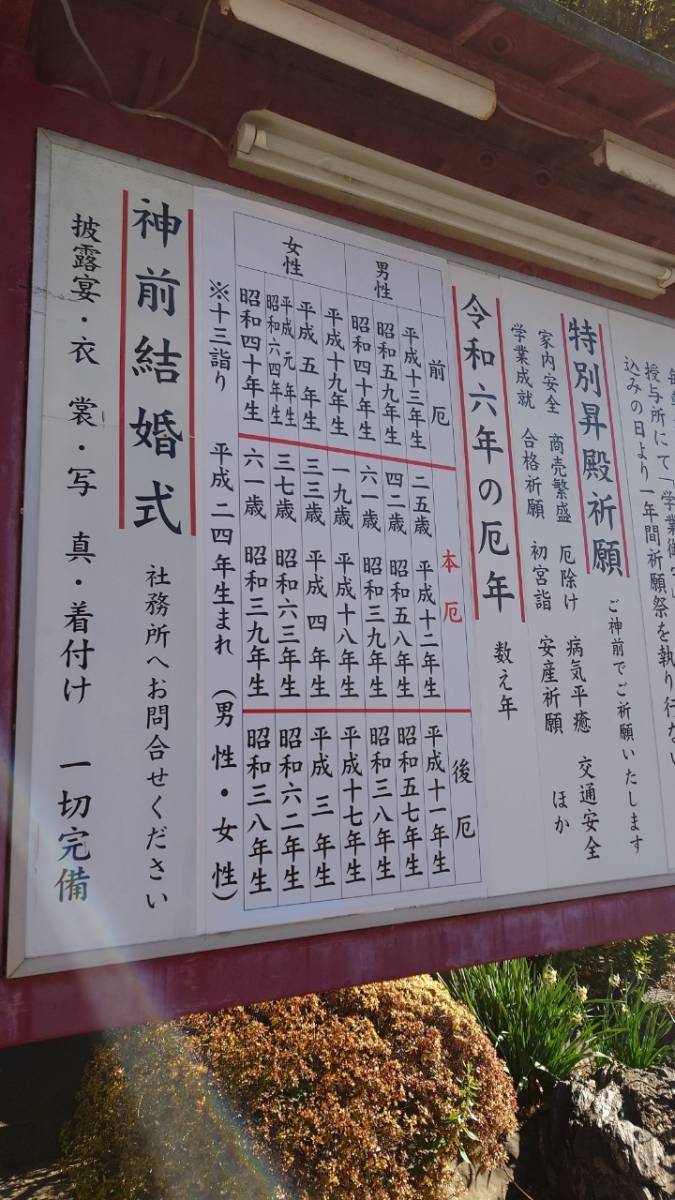 授与所にて「学業御守」
込みの日より一年間祈願祭を執り行ない
特別昇殿祈願 ご神前でご祈願いたします
家内安全 商売繁盛 厄除け 病気平癒 交通安全
学業成就 合格祈願 初宮詣 安産祈願 ほか
令和六年の厄年 数え年
前厄 本厄 後厄
男性
平成十三年生 二五歳 平成十二年生 平成十一年生
昭和五九年生 四二歳 昭和五八年生 昭和五七年生
昭和四十年生 六一歳 昭和三九年生 昭和三八年生
女性
平成十九年生 一九歳 平成十八年生 平成十七年生
平成五年生 三三歳 平成四年生 平成三年生
平成元年生
昭和六四年生 三七歳 昭和六三年生 昭和六二年生
昭和四十年生 六一歳 昭和三九年生 昭和三八年生
※十三詣り 平成二四年生まれ (男性・女性)
神前結婚式 社務所へお問合せください
披露宴・衣裳・写真・着付け 一切完備